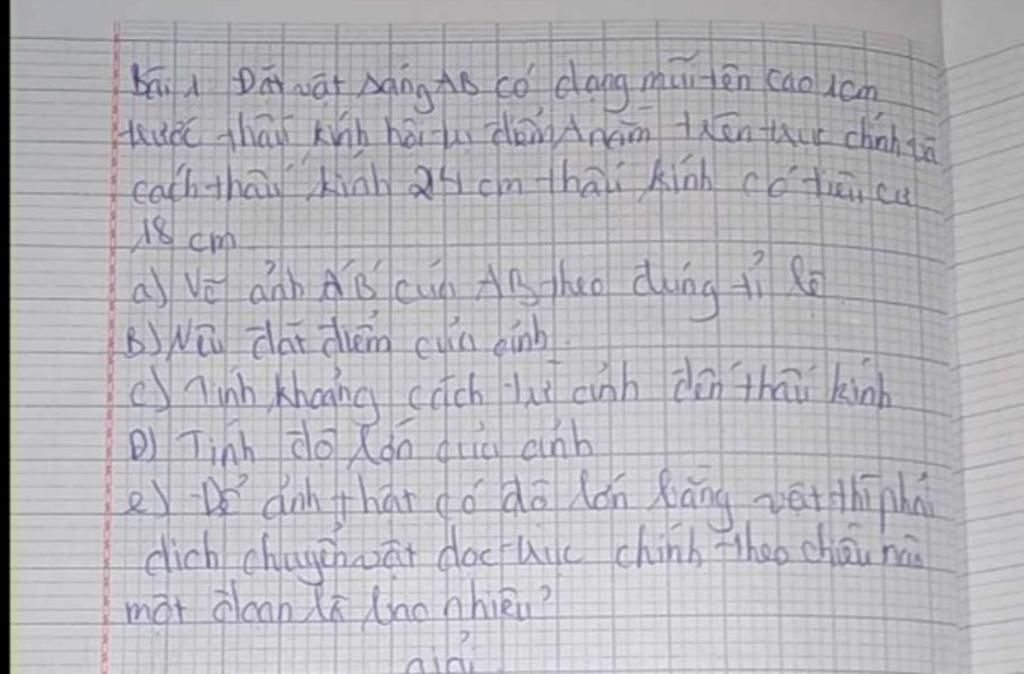 Bài 1 Đặt vật sáng AB có dạng mũi tên cao 1cm
trước thấu kính hội tụ điểm A nằm trên trục chính và
cách thấu kính 24 cm thấu kính có tiêu cự
18 cm
a) Vẽ ảnh A'B' của AB theo đúng tỉ lệ
B) Nêu đặc điểm của ảnh
c) Tính khoảng cách từ ảnh đến thấu kính
D) Tính độ lớn của ảnh
e) Để ảnh thật có độ lớn bằng vật thì phải
dịch chuyển vật dọc trục chính theo chiều nào
một đoạn là bao nhiêu?
giải